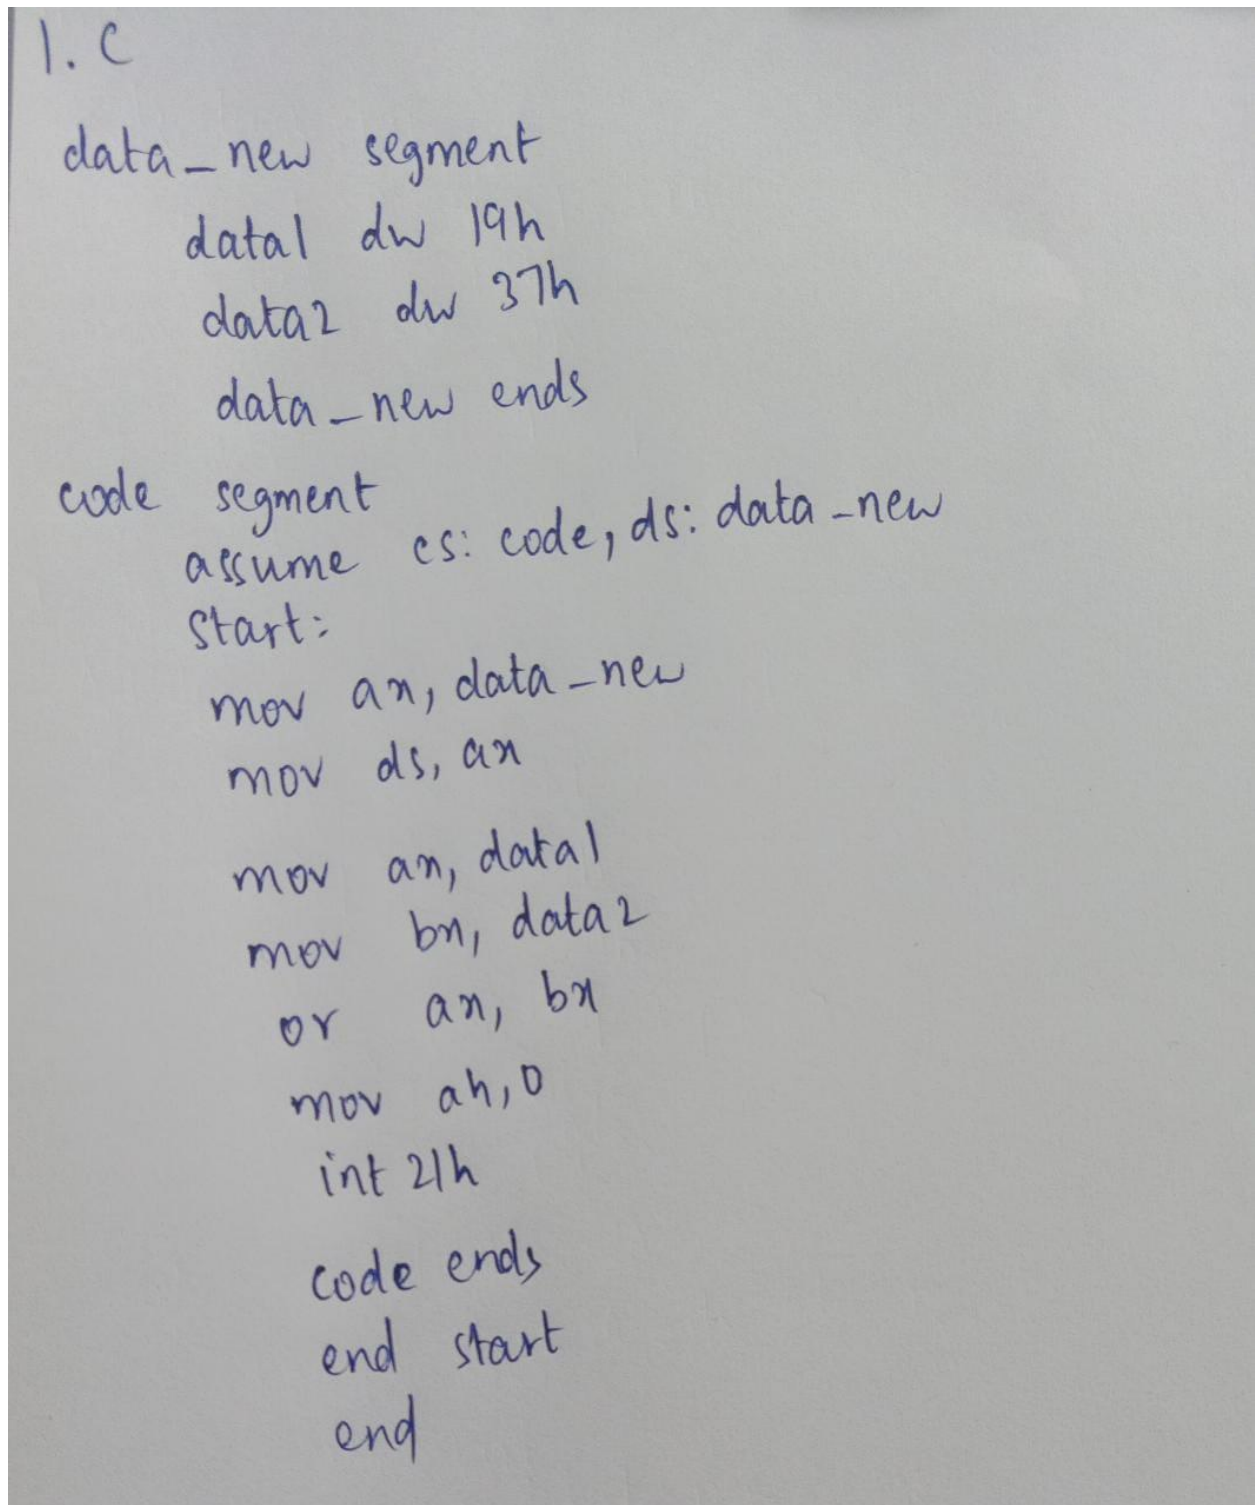 1. C
data_new segment
data1 dw 19h
data2 dw 37h
data_new ends
code segment
assume cs: code, ds: data_new
start:
mov ax, data_new
mov ds, ax
mov ax, data1
mov bx, data2
or ax, bx
mov ah, 0
int 21h
code ends
end start
end